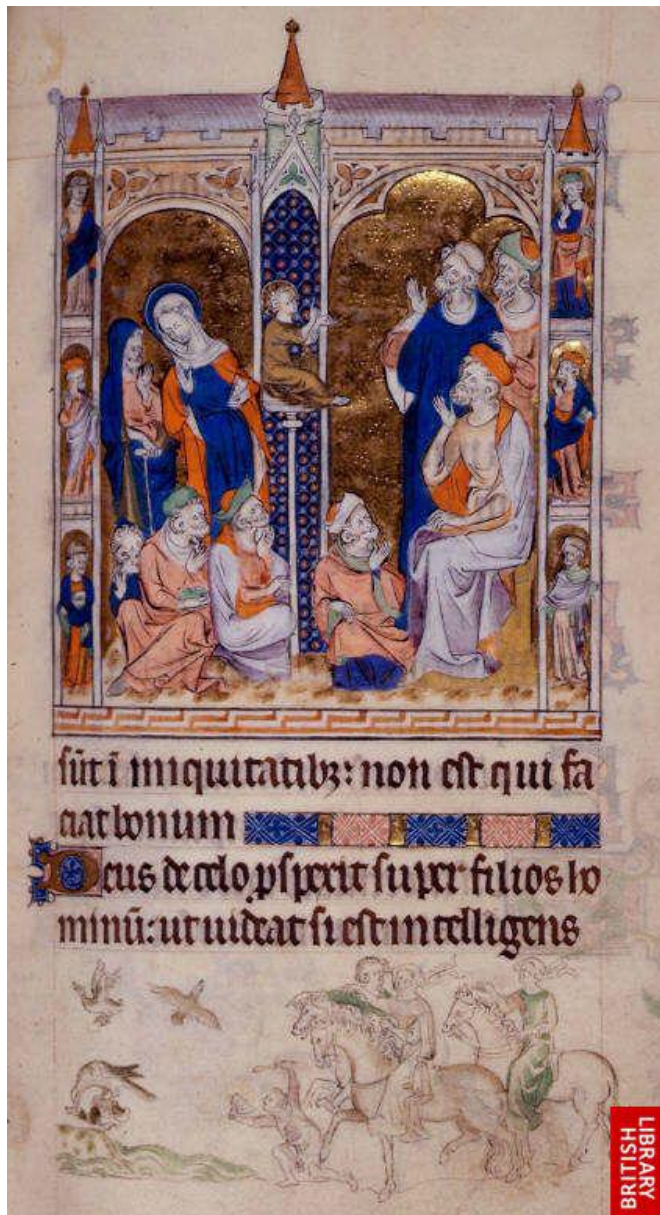 sūt ī iniquitatibꝫ: non est qui fa
ciat bonum
Deus de celo ꝓspexit super filios ho
minū: ut uideat si est intelligens
BRITISH
LIBRARY